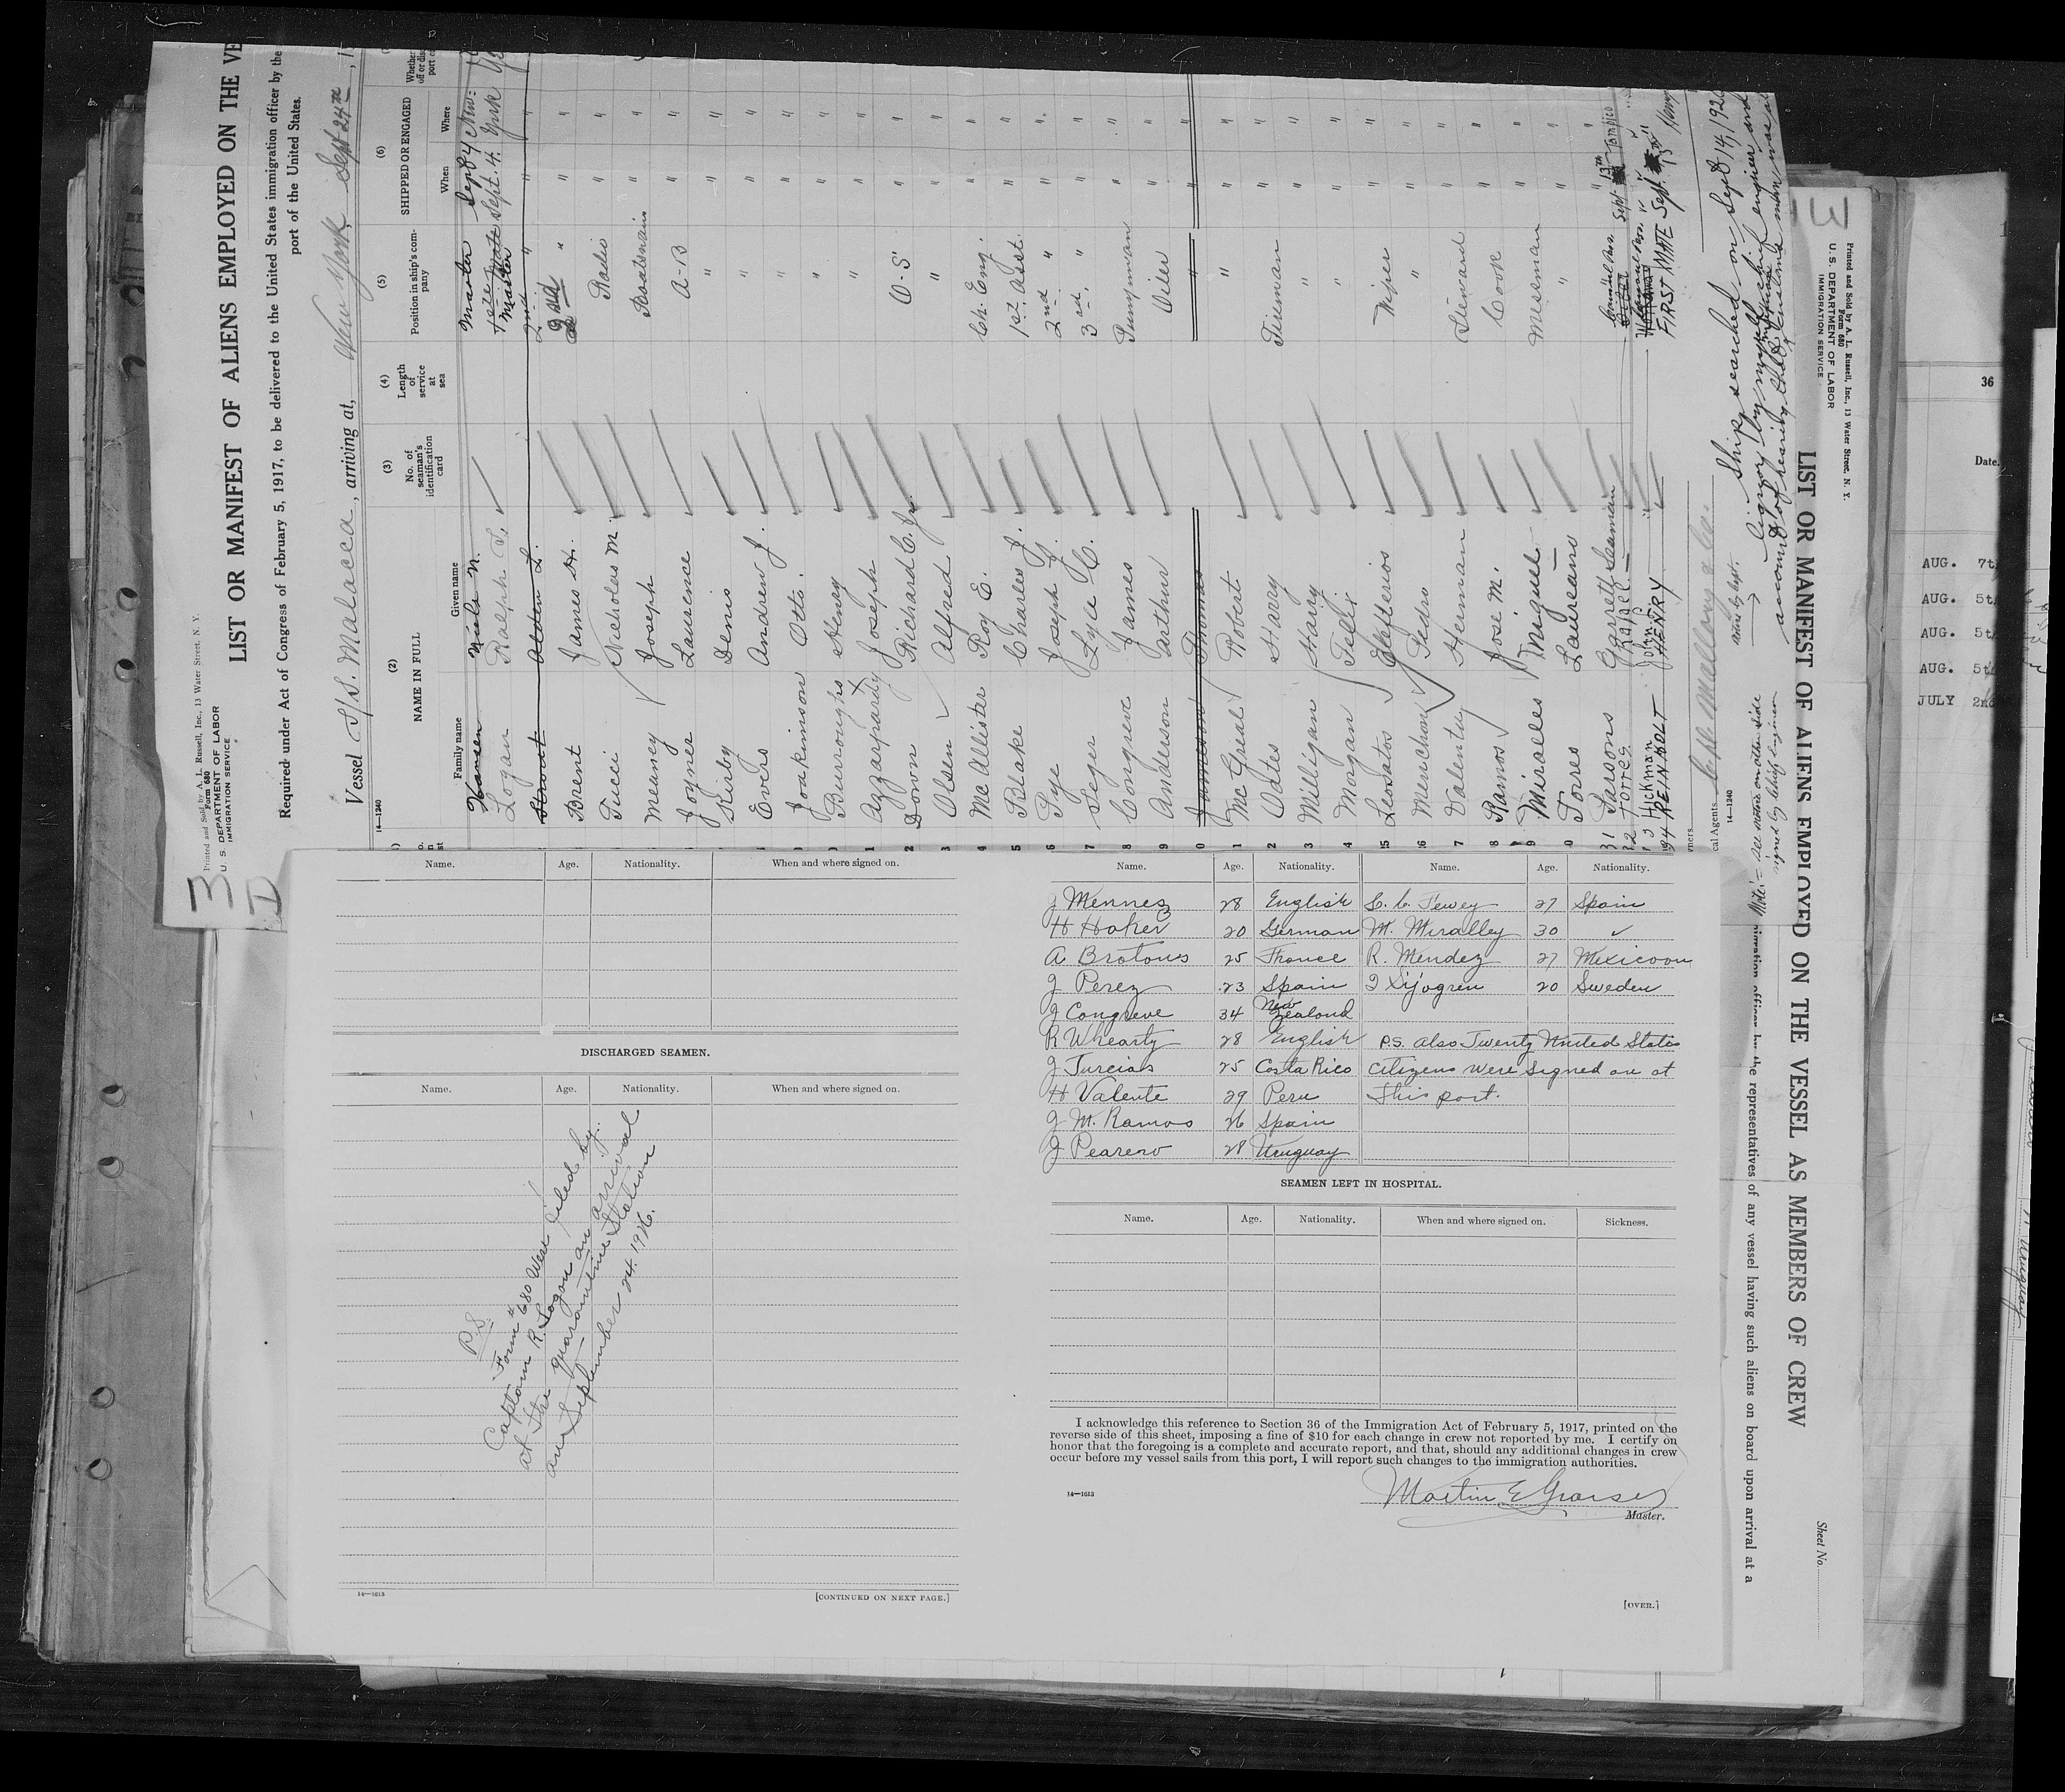 Printed and Sold by A. L. Russell, Inc., 13 Water Street, N. Y.
Form 680
U. S. DEPARTMENT OF LABOR
IMMIGRATION SERVICE
3
LIST OR MANIFEST OF ALIENS EMPLOYED ON THE VE
Required under Act of Congress of February 5, 1917, to be delivered to the United States immigration officer by the
port of the United States.
Vessel S/S. Malacca, arriving at, New York, Sept 24th, 1
14—1240
(2)
NAME IN FULL
Family name
Given name
(3)
No. of seaman's identification card
(4)
Length of service at sea
(5)
Position in ship's company
(6)
SHIPPED OR ENGAGED
When
Where
Hansen Niels N. Master Sept 4 New
Logan Ralph S. 1st Mate Master Sept. 4. York
Stewart Alden L. 2nd " " "
Brent James H. " " "
Tucci Nicholas M. Radio " "
Meaney Joseph Boatswain " "
Joyner Laurence A-B " "
Kirby Denis " " "
Evers Andrew J. " " "
Joakimson Otto. " " "
Burroughs Henry " " "
Azzarpardy Joseph " " "
Doron Richard C. Jr. O.S. " "
Olsen Alfred " " "
McAllister Roy E. Ch. Eng. " "
Blake Charles J. 1st. Asst. " "
Sye Joseph Y. 2nd " " "
Seger Lyle C. 3rd " " "
Congreve James Pumpman " "
Anderson Arthur Oiler " "
Jameson Thomas " " "
McGreal Robert " " "
Oates Harry Fireman " "
Milligan Harry " " "
Morgan " " "
Leosatos Elefterios Wiper " "
Menchon Pedro " " "
Valentu Herman Steward " "
Ramos Jose M. Cook " "
Miralles Miguel Messman " "
Tores Laureano " " "
31 Parsons Garrett Seaman Sept 13th Tampico
32 Torres Rafael
Hickman John
34 REINHOLT HENRY FIRST MATE Sept. 13
Owners
cal Agents
14—1240
Ship searched on Sept 14, 1926
Note:— see note on other side signed by Chief Engineer
3
Printed and Sold by A. L. Russell, Inc., 13 Water Street, N. Y.
Form 680
U. S. DEPARTMENT OF LABOR
IMMIGRATION SERVICE
LIST OR MANIFEST OF ALIENS EMPLOYED ON THE VESSEL AS MEMBERS OF CREW
the representatives of any vessel having such aliens on board upon arrival at a
Sheet No.
36
Date.
AUG. 7t
AUG. 5t
AUG. 5t
AUG. 5t
JULY 2nd
Name. Age. Nationality. When and where signed on.
DISCHARGED SEAMEN.
Name. Age. Nationality. When and where signed on.
P.S.
Form # 680 West filed by
Captain R. Logan on arrival
at the quarantine Station
on September 24. 1926.
14—1613
[CONTINUED ON NEXT PAGE.]
Name. Age. Nationality. Name. Age. Nationality.
J Mennez 28 English S. C. Tewey 27 Spain
H Hoker 20 German M. Miralley 30 ✓
A Brotons 25 France R. Mendez 27 Mexicoon
J Perez 23 Spain I Sjogren 20 Sweden
J Congreve 34 New Zealand
R Whearty 28 English P.S. also Twenty United States
J Turcios 25 Costa Rico Citizens were Signed on at
H Valente 29 Peru this port.
J M. Ramos 26 Spain
J Peareno 28 Uruguay
SEAMEN LEFT IN HOSPITAL.
Name. Age. Nationality. When and where signed on. Sickness.
I acknowledge this reference to Section 36 of the Immigration Act of February 5, 1917, printed on the
reverse side of this sheet, imposing a fine of $10 for each change in crew not reported by me. I certify on
honor that the foregoing is a complete and accurate report, and that, should any additional changes in crew
occur before my vessel sails from this port, I will report such changes to the immigration authorities.
14—1613
Master.
[OVER.]